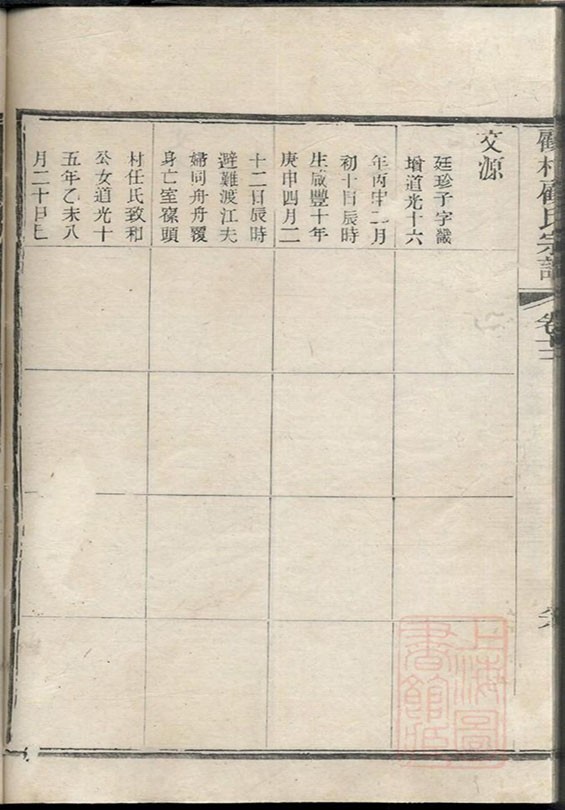 顧村顧氏宗譜
卷十三
文源
廷珍子字
增道光十六
年丙申二月
初十日辰時
生咸豐十年
庚申四月二
十二日辰時
避難渡江夫
婦同舟舟覆
身亡室槩頭
村任氏致和
公女道光十
五年乙未八
月二十日巳
上海圖書館藏